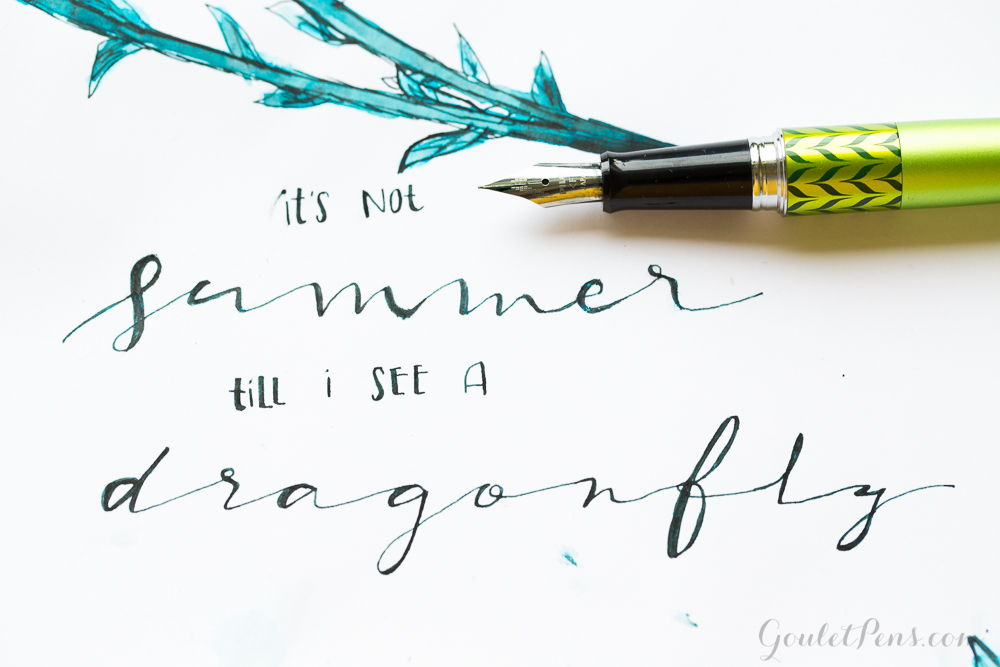 it's NOt
summer
tiLL i SEE A
dragonfly
GouletPens.com